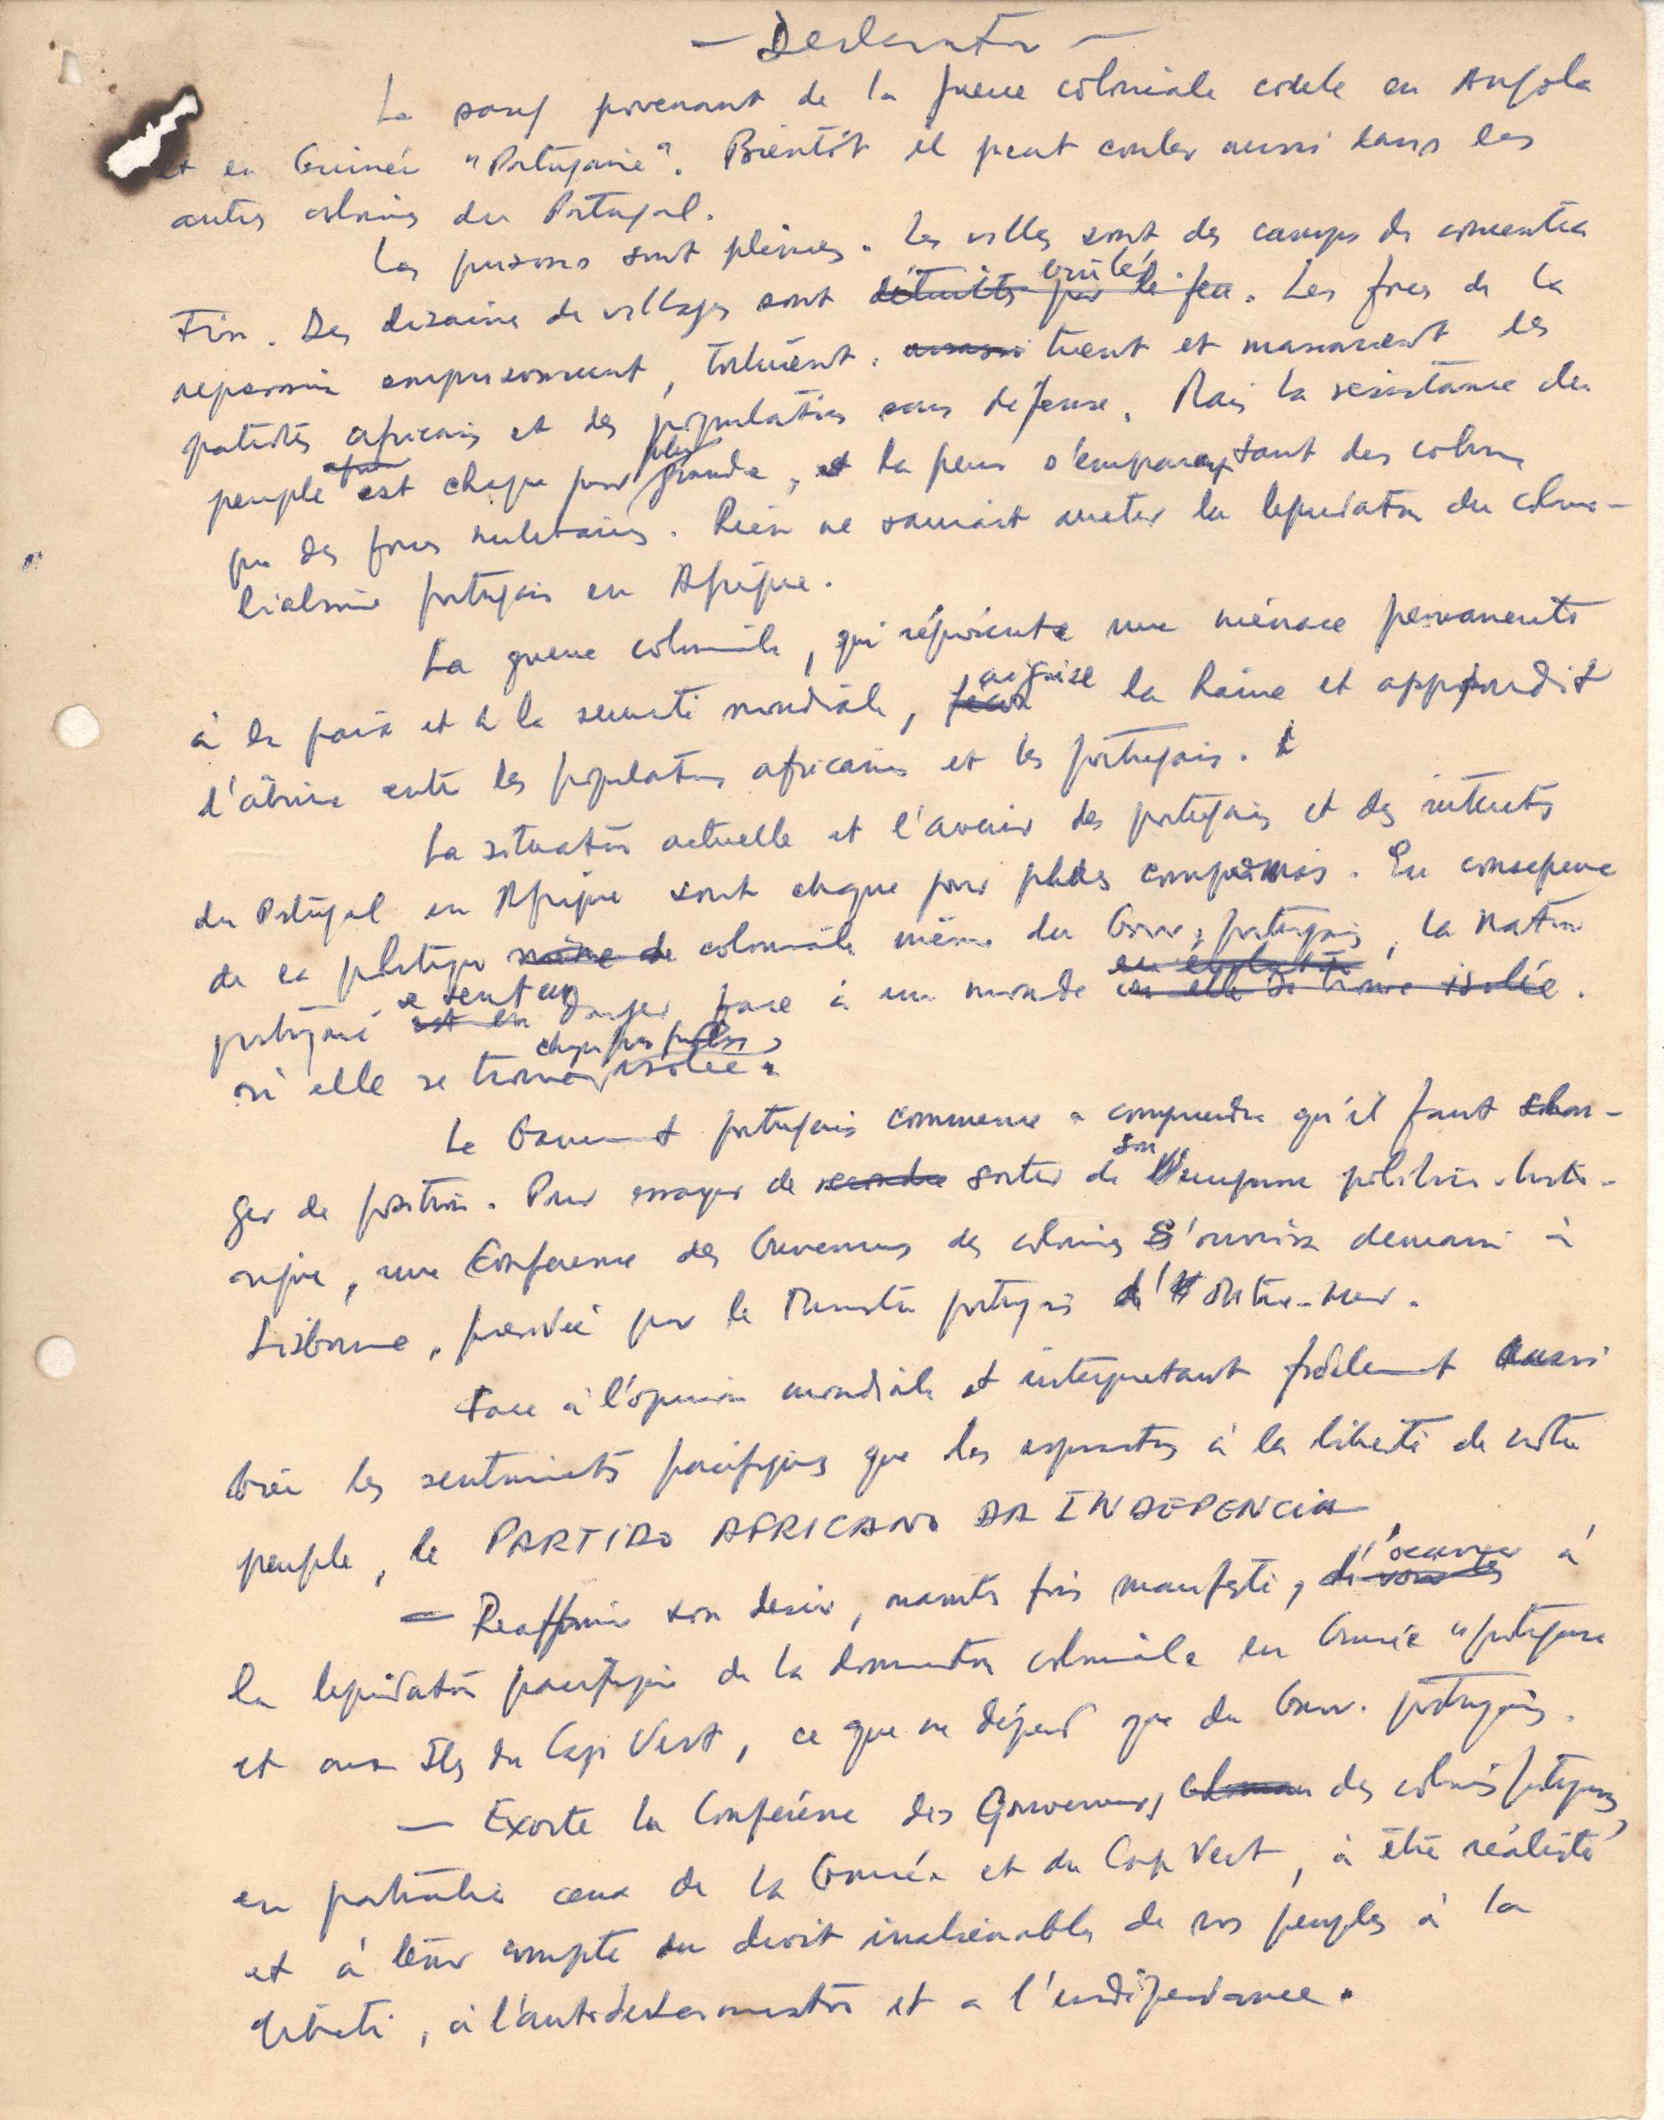 — Declaration —
Le sang provenant de la guerre coloniale coule en Angola
et en Guinée "Portugaise". Bientôt il peut couler aussi dans les
autres colonies du Portugal.
Les prisons sont pleines. Les villes sont des camps de concentra
tion. Des dizaines de villages sont détruits par le feu brûlés. Les forces de la
repression emprisonnent, torturent, tuent et massacrent les
patriotes africains et des populations sans défense. Mais la resistance du
peuple est chaque jour plus grande, et la peur s'empare tant des colons
que des forces militaires. Rien ne saurait arreter la liquidation du colonia-
lialisme portugais en Afrique.
La guerre coloniale, qui réprésente une ménace permanente
à la paix et à la securité mondiale, aiguise la haine et approfondit
l'abîme entre les populations africaines et les portugais.
La situation actuelle et l'avenir des portugais et des interets
du Portugal en Afrique sont chaque jour plus compromis. En consequence
de la politique coloniale même du Gouv. portugais, la nation
portugaise se sent en danger face à un monde où elle se trouve isolée.
où elle se trouve chaque jour plus isolée.
Le Gouvernement portugais commence a comprendre qu'il faut chan-
ger de position. Pour essayer de sortir de son politico-
une Conference des Gouverneurs des colonies s'ouvrira demain à
Lisbonne, présidée par le Ministre portugais d'Outre-mer.
Face à l'opinion mondiale et interpretant fidèlement aussi
bien les sentiments pacifiques que les aspirations à la liberté de notre
peuple, le PARTIDO AFRICANO DA INDEPENCIA
— Reaffirme son desir, maintes fois manifesté, d'oeuvrer à
la liquidation pacifique de la domination coloniale en Guinée "portugaise
et aux Îles du Cap Vert, ce que ne dépend que du Gouv. portugais.
— Exorte la Conférence des Gouverneurs des colonies portugaises,
en particulier ceux de la Guinée et du Cap Vert, à être réaliste
et à tenir compte du droit inalienables de nos peuples à la
liberté, à l'autodetermination et a l'indépendance.